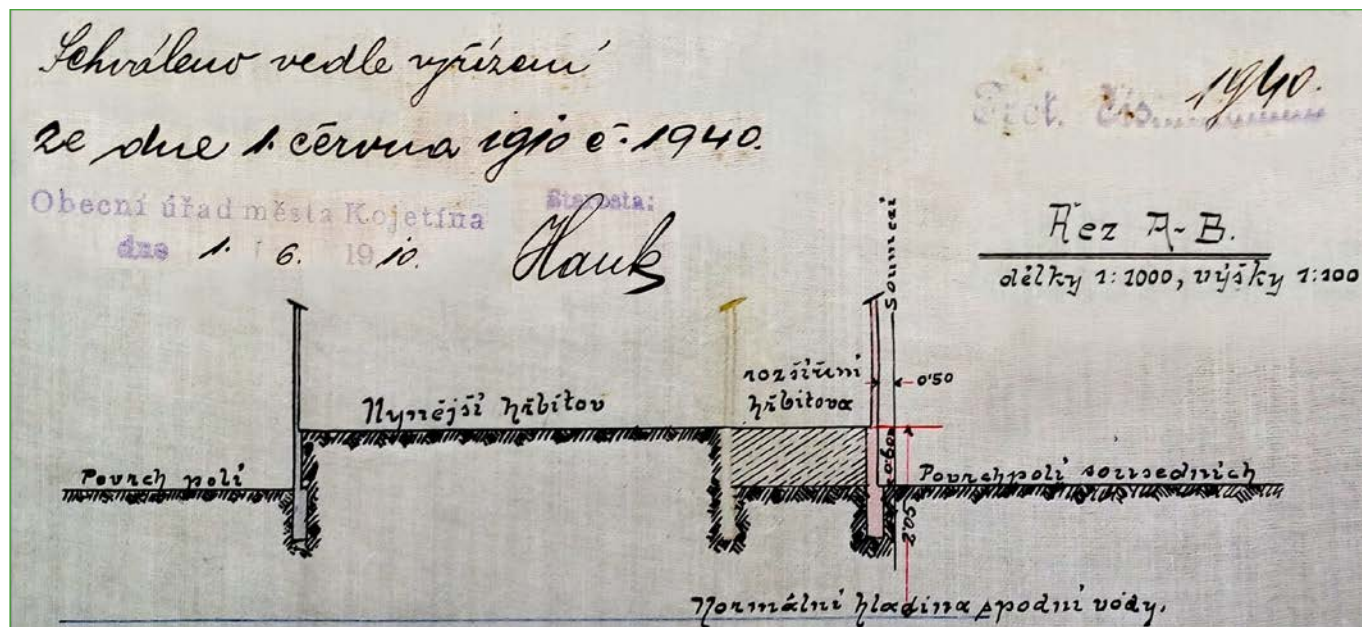 Schváleno vedle vyřízení
ze dne 1. června 1910 č. 1940.
Prot. čís. 1940.
Obecní úřad města Kojetína
dne 1. 6. 1910.
Starosta:
Hauk
Řez A-B.
délky 1:1000, výšky 1:100
Soumezí
rozšíření
hřbitova
0·50
Nynější hřbitov
0·60
Povrch polí
Povrch polí sousedních
2·05
Normální hladina spodní vody.